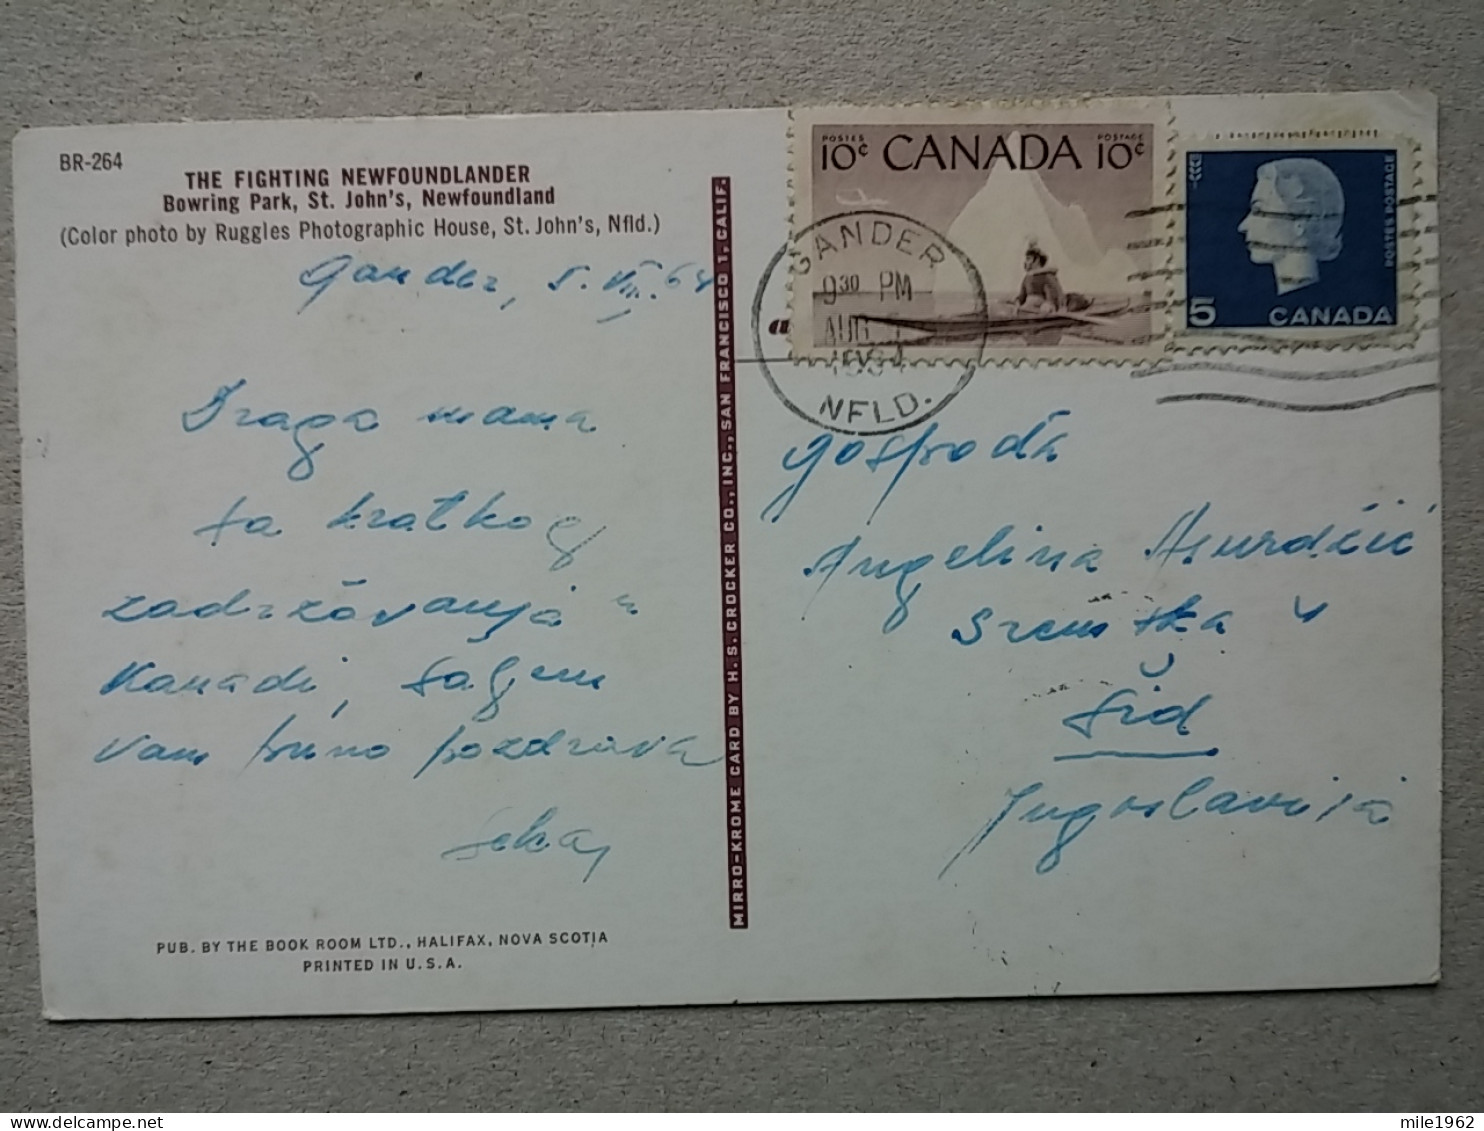 BR-264
THE FIGHTING NEWFOUNDLANDER
Bowring Park, St. John's, Newfoundland
(Color photo by Ruggles Photographic House, St. John's, Nfld.)
Gander, 5. VIII. 64
Draga mama
sa kratkog
zadržavanja u
Kanadi, šaljem
vam puno pozdrava
Seka
PUB. BY THE BOOK ROOM LTD., HALIFAX, NOVA SCOTIA
PRINTED IN U.S.A.
MIRRO-KROME CARD BY H. S. CROCKER CO., INC., SAN FRANCISCO 1, CALIF.
POSTES POSTAGE
10¢ CANADA 10¢
POSTES POSTAGE
5 CANADA
GANDER
9 30 PM
AUG
1964
NFLD.
Gospođa
Angelina
Sremska 4
Šid
Jugoslavija
mile1962